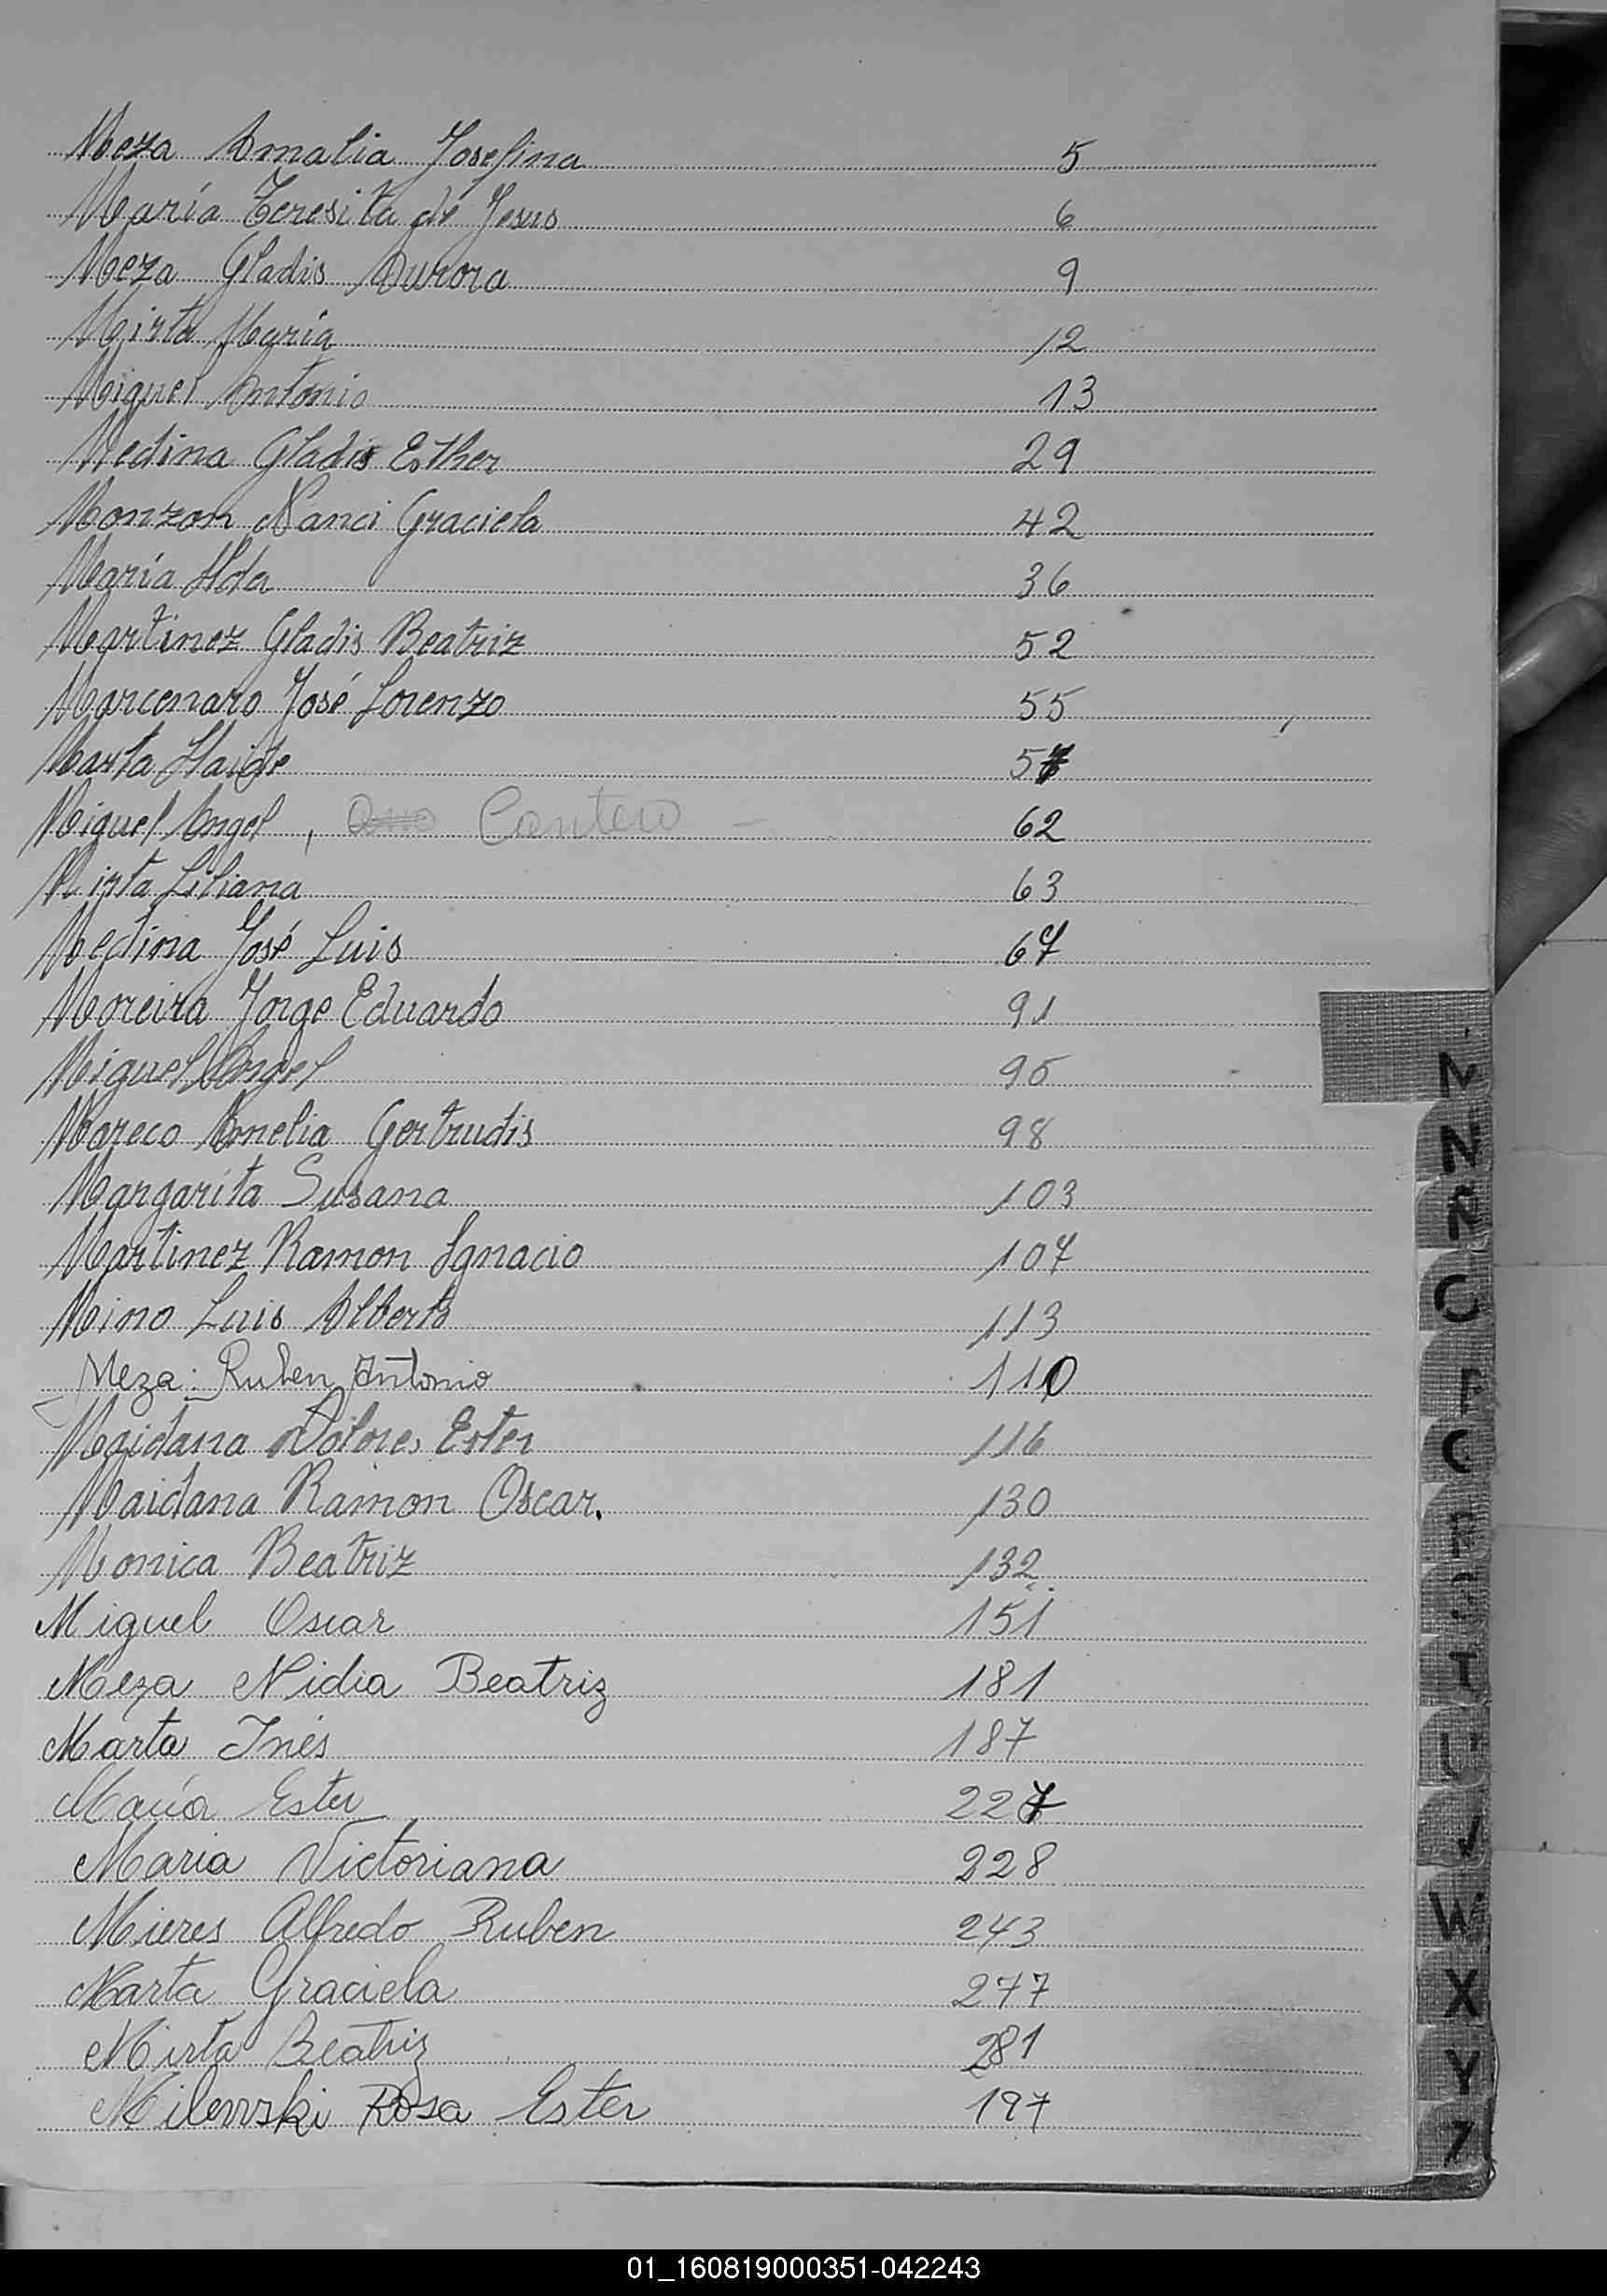 Meza Amalia Josefina 5
María Teresita de Jesus 6
Meza Gladis Aurora 9
Mirta María 12
Miguel Antonio 13
Medina Gladis Esther 29
Monzon Nanci Graciela 42
María Ilda 36
Martinez Gladis Beatriz 52
Marcenaro José Lorenzo 55
Marta Haide 57
Miguel Angel, Cantero - 62
Mirta Liliana 63
Medina José Luis 67
Moreira Jorge Eduardo 91
Miguel Angel 95
Mareco Amelia Gertrudis 98
Margarita Susana 103
Martinez Ramon Ignacio 107
Mino Luis Alberto 113
Meza: Ruben Antonio 110
Maidana Dolores Ester 116
Maidana Ramon Oscar. 130
Monica Beatriz 132
Miguel Oscar 151
Meza Nidia Beatriz 181
Marta Inés 187
María Ester 227
Maria Victoriana 228
Mieres Alfredo Ruben 243
Marta Graciela 277
Mirta Beatriz 281
Milewski Rosa Ester 197
N
N
Ñ
O
P
Q
R
S
T
U
V
W
X
Y
Z
01_160819000351-042243